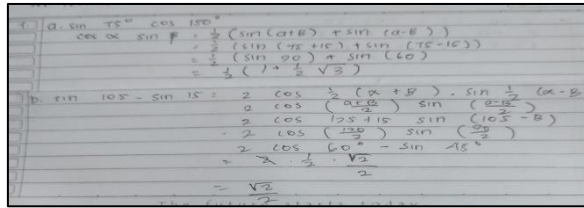 1 a. sin 75° cos 150°
cos α sin β = ½ (sin (α+β) + sin (α-β))
= ½ (sin (75 +15) + sin (75-15))
= ½ (sin 90) + sin (60)
= ½ (1 + ½ √3)
b. sin 105 - sin 15 = 2 cos ½ (α + β) . sin ½ (α-β
2 cos (α+β/2) sin (α-β/2)
2 cos 125+15 sin (105 - B)
2 cos (120/2) sin (90/2)
2 cos 60° - sin 45°
= 2 . ½ . √2/2
= √2/2
The future starts today